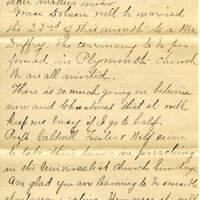 other matters now.
Grace Dobson will be married
the 22nd of this month to a Mr.
Duffey. The ceremony to be per-
formed in Plymouth Church
We are all invited.
There is so much going on between
now and Christmas that it will
keep me busy if I go to half.
Profs Caldwell, Foster & Wolf seem
to take their turns in preaching
in the Universalist Church Sundays.
Am glad you are learning to